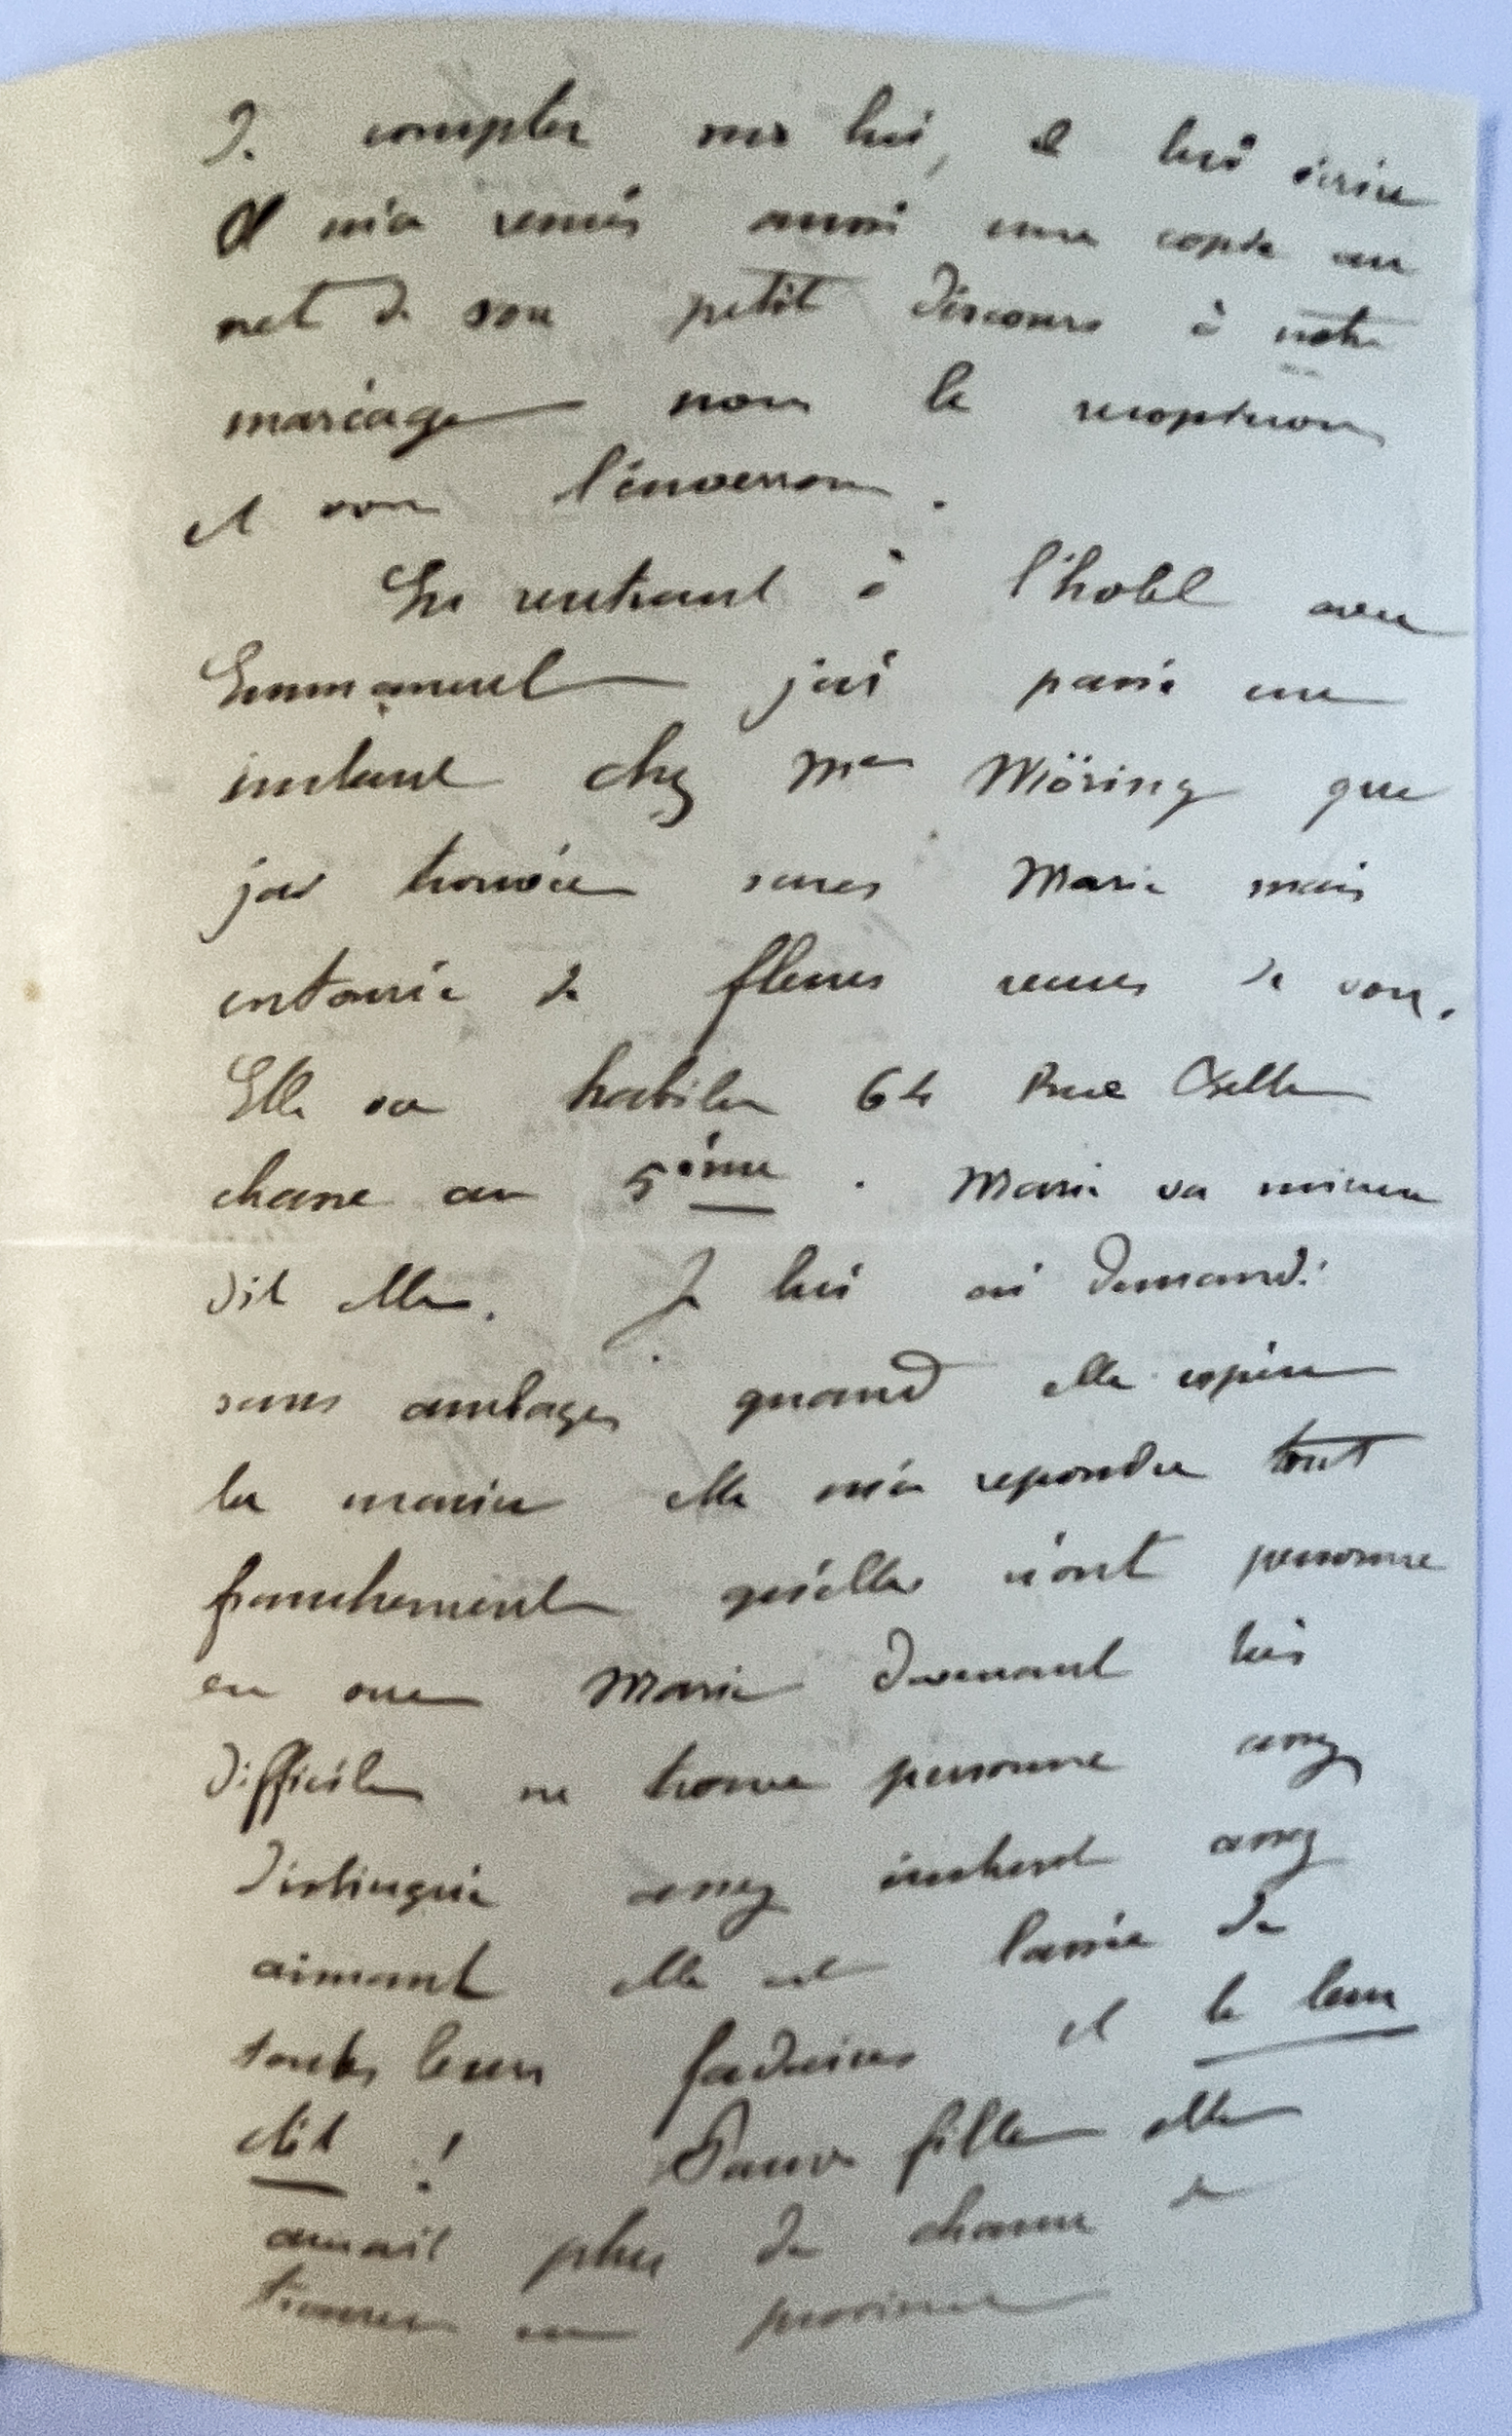 De compter sur lui, et lui écrire
Il m'a remis aussi une copie au
net de son petit discours à notre
mariage nous le recopierons
et vous l'enverrons.
En rentrant à l'hôtel avec
Emmanuel j'ai passé un
instant chez Mme Möring que
j'ai trouvée sans Marie mais
entourée de fleurs venues de vous.
Elle va habiter 64 Rue
au 5ième. Marie va mieux
dit elle. Je lui ai demandé
sans ambages quand elle espère
la marier elle m'a répondu tout
franchement qu'elles n'ont personne
en vue Marie devenant très
difficile ne trouve personne assez
distingué assez assez
aimant elle est lassée de
toutes leurs fadaises et le leur
dit ! Pauvre fille elle
aurait plus de chance de
trouver en province